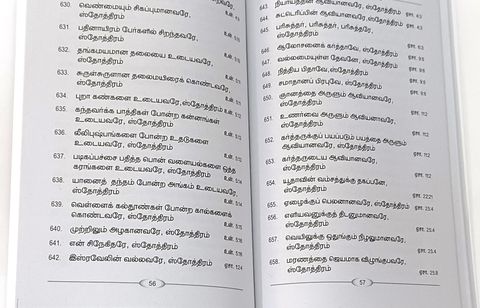 630. வெண்மையும் சிகப்புமானவரே, ஸ்தோத்திரம்
உன். 5:10
631. பதினாயிரம் பேர்களில் சிறந்தவரே,
ஸ்தோத்திரம்
632. தங்கமயமான தலையை உடையவரே,
ஸ்தோத்திரம்
633. சுருள்சுருளான தலைமயிரைக் கொண்டவரே,
ஸ்தோத்திரம்
634. புறா கண்களை உடையவரே, ஸ்தோத்திரம்
635. கந்தவர்க்க பாத்திகள் போன்ற கன்னங்கள்
உடையவரே, ஸ்தோத்திரம்
636. லீலிபுஷ்பங்களை போன்ற உதடுகளை
உடையவரே, ஸ்தோத்திரம்
637. படிகப்பச்சை பதித்த பொன் வளையல்களை ஒத்த
கரங்களை உடையவரே, ஸ்தோத்திரம்
638. யானைத் தந்தம் போன்ற அங்கம் உடையவரே,
ஸ்தோத்திரம்
639. வெள்ளைக் கல்தூண்கள் போன்ற கால்களைக்
கொண்டவரே, ஸ்தோத்திரம்
640. முற்றிலும் அழகானவரே, ஸ்தோத்திரம்
641. என் சிநேகிதரே, ஸ்தோத்திரம்
642. இஸ்ரவேலின் வல்லவரே, ஸ்தோத்திரம் ஏசா. 1:24
56
643. நியாயத்தின் ஆவியானவரே, ஸ்தோத்திரம்
644. சுட்டெரிப்பின் ஆவியானவரே, ஸ்தோத்திரம்
645. பரிசுத்தர், பரிசுத்தர், பரிசுத்தரே,
ஸ்தோத்திரம்
646. ஆலோசனைக் கர்த்தாவே, ஸ்தோத்திரம்
647. வல்லமையுள்ள தேவனே, ஸ்தோத்திரம்
648. நித்திய பிதாவே, ஸ்தோத்திரம்
649. சமாதானப் பிரபுவே, ஸ்தோத்திரம்
650. ஞானத்தை அருளும் ஆவியானவரே,
ஸ்தோத்திரம்
651. உணர்வை அருளும் ஆவியானவரே,
ஸ்தோத்திரம்
652. கர்த்தருக்குப் பயப்படும் பயத்தை அருளும்
ஆவியானவரே, ஸ்தோத்திரம்
653. கர்த்தருடைய ஆவியானவரே,
ஸ்தோத்திரம்
654. யூதாவின் வம்சத்துக்கு தகப்பனே,
ஸ்தோத்திரம்
655. ஏழைக்குப் பெலனானவரே, ஸ்தோத்திரம்
656. எளியவனுக்குத் திடனுமானவரே,
ஸ்தோத்திரம்
657. வெயிலுக்கு ஒதுங்கும் நிழலுமானவரே,
ஸ்தோத்திரம்
658. மரணத்தை ஜெயமாக விழுங்குபவரே,
ஸ்தோத்திரம் ஏசா. 25:8
57